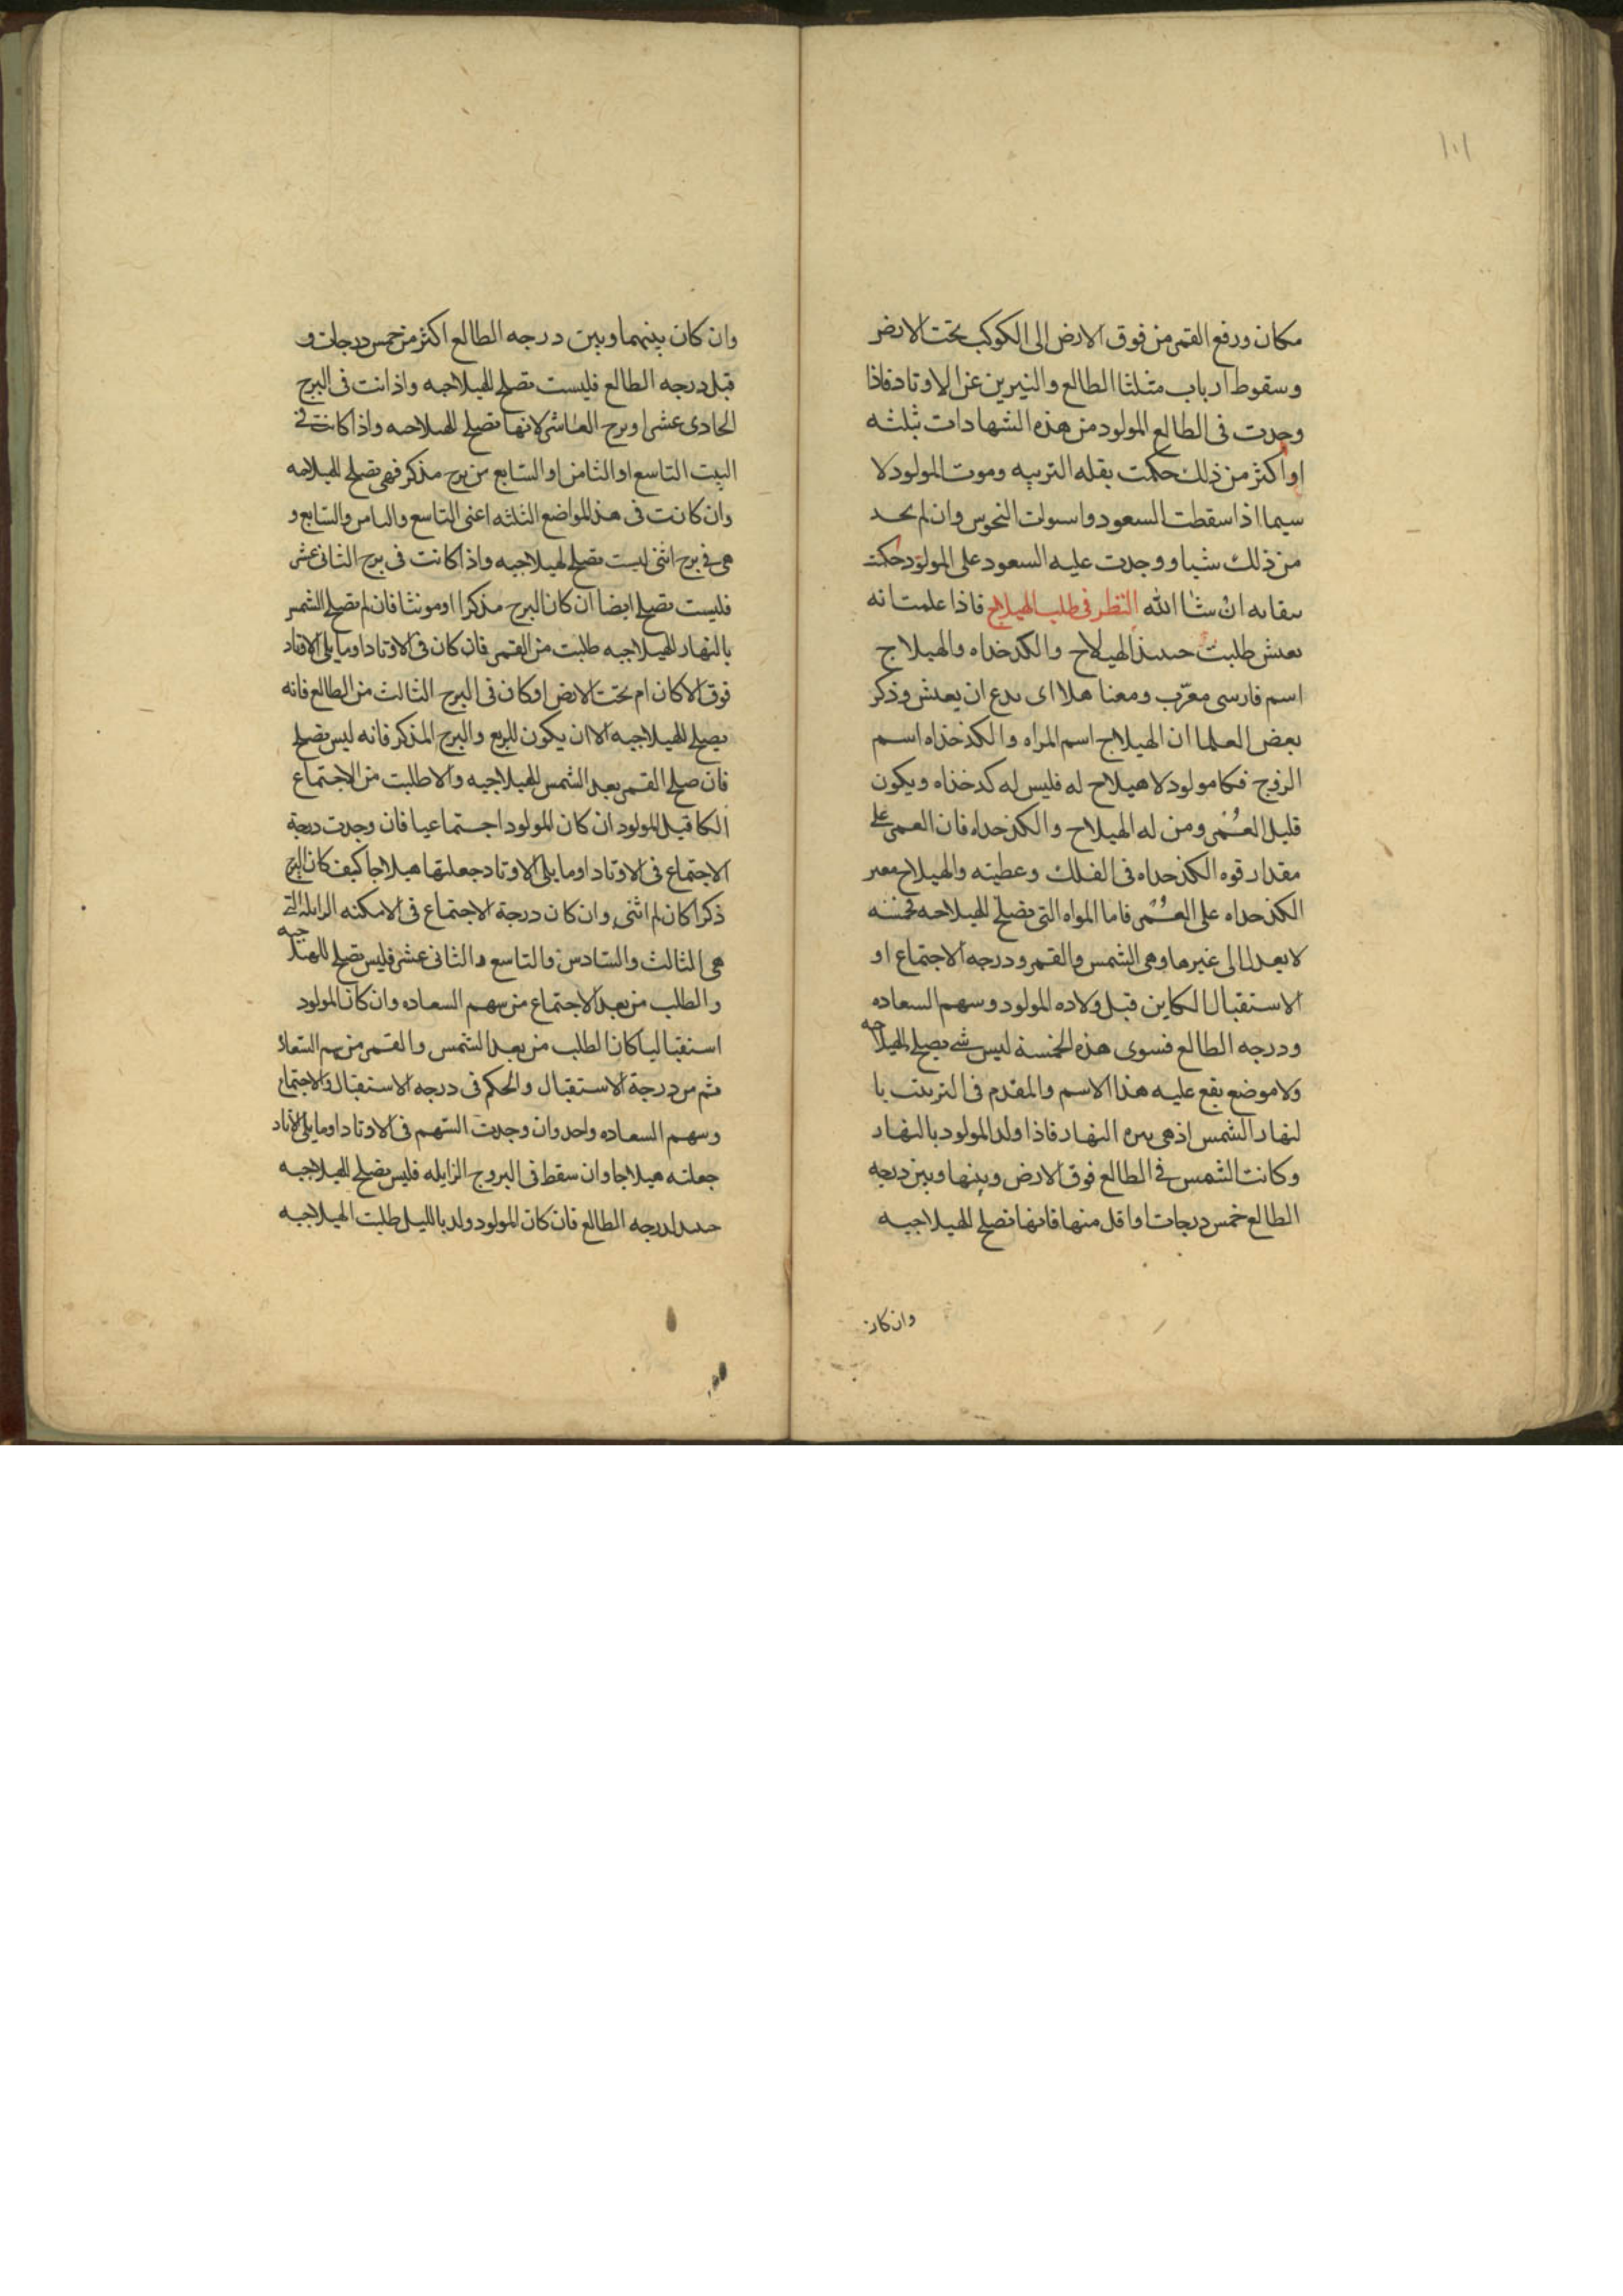 ١٠١
مكان ورفع القمر من فوق الارض الى الكوكب تحت الارض
وسقوط ارباب مثلثا الطالع والنيرين عن الاوتاد فاذا
وجدت فى الطالع المولود من هذه الشهادات ثلثه
او اكثر من ذلك حكمت بقله التربيه وموت المولود لا
سيما اذا سقطت السعود واسولت النحوس وان لم تحد
من ذلك شيا ووجدت عليه السعود على المولود حكمت
ببقايه ان شاا الله النظر فى طلب الهيلاج فاذا علمت انه
يعيش طلبت حينيذ الهيلاج والكدخداه والهيلاج
اسم فارسى معرّب ومعنا هلا اى يدع ان يعيش وذكر
بعض العلما ان الهيلاج اسم المراه والكذخذاه اسم
الزوج فكا مولود لا هيلاج له فليس له كدخذاه ويكون
قليل العُمر ومن له الهيلاج والكذخداه فان العمر على
مقدار قوه الكذخداه فى الفلك وعطيته والهيلاج معبر
الكذخداه على العُمر فاما المواه التى تصلح للهيلاجه فخمسه
لا يعدل الى غيرها وهى الشمس والقمر ودرجه الاجتماع او
الاستقبال الكاين قبل ولاده المولود وسهم السعاده
ودرجه الطالع فسوى هذه الخمسة ليس شى يصلح للهيلاجه
ولا موضع يقع عليه هذا الاسم والمقدم فى الترتيب با
لنهار الشمس اذ هى نيره النهار فاذا ولد المولود بالنهار
وكانت الشمس فى الطالع فوق الارض وبينها وبين درجه
الطالع خمس درجات او اقل منها فانها تصلح للهيلاجيه
وان كان
وان كان بينهما وبين درجه الطالع اكثر من خمس درجات و
قبل درجه الطالع فليست تصلح للهيلاجيه واذا انت فى البرج
الحادى عشر او برج العاشر لانها تصلح للهيلاجه واذا كانت فى
البيت التاسع او الثامن او السابع من برج مذكر فهى تصلح للهيلاجه
وان كانت فى هذ المواضع الثلثه اعنى التاسع والثامن والسابع و
هى فى برج انثى ليست تصلح للهيلاجيه واذا كانت فى برج الثانى عشر
فليست تصلح ايضا ان كان البرج مذكرا او مونثا فان لم تصلح الشمس
بالنهار للهيلاجيه طلبت من القمر فان كان فى الاوتاد او ما يلى الاوتاد
فوق الا كان ام تحت الارض او كان فى البرج الثالث من الطالع فانه
يصلح للهيلاجيه الا ان يكون للربع والبرج المذكر فانه ليس تصلح
فان صلح القمر بعد الشمس للهيلاجيه والا طلبت من الاجتماع
الكا قبل المولود ان كان المولود اجتماعيا فان وجدت درجة
الاجتماع فى الاوتاد او ما يلى الاوتاد جعلتها هيلاجا كيف كان البرج
ذكرا كان لم انثى وان كان درجة الاجتماع فى الامكنه الزايله التى
هى الثالث والسادس والتاسع والثانى عشر فليس تصلح للهيلاجيه
والطلب من بعد الاجتماع من سهم السعاده وان كان المولود
استقباليا كان الطلب من بعد الشمس والقمر من سهم السعاد
ثم من درجة الاستقبال والحكم فى درجه الاستقبال والاجتماع
وسهم السعاده واحد وان وجدت السهم فى الاوتاد او ما يلى الاوتاد
جعلته هيلاجا وان سقط فى البروج الزايله فليس تصلح للهيلاجيه
حينيذ لدرجه الطالع فان كان المولود ولد بالليل طلبت الهيلاجيه